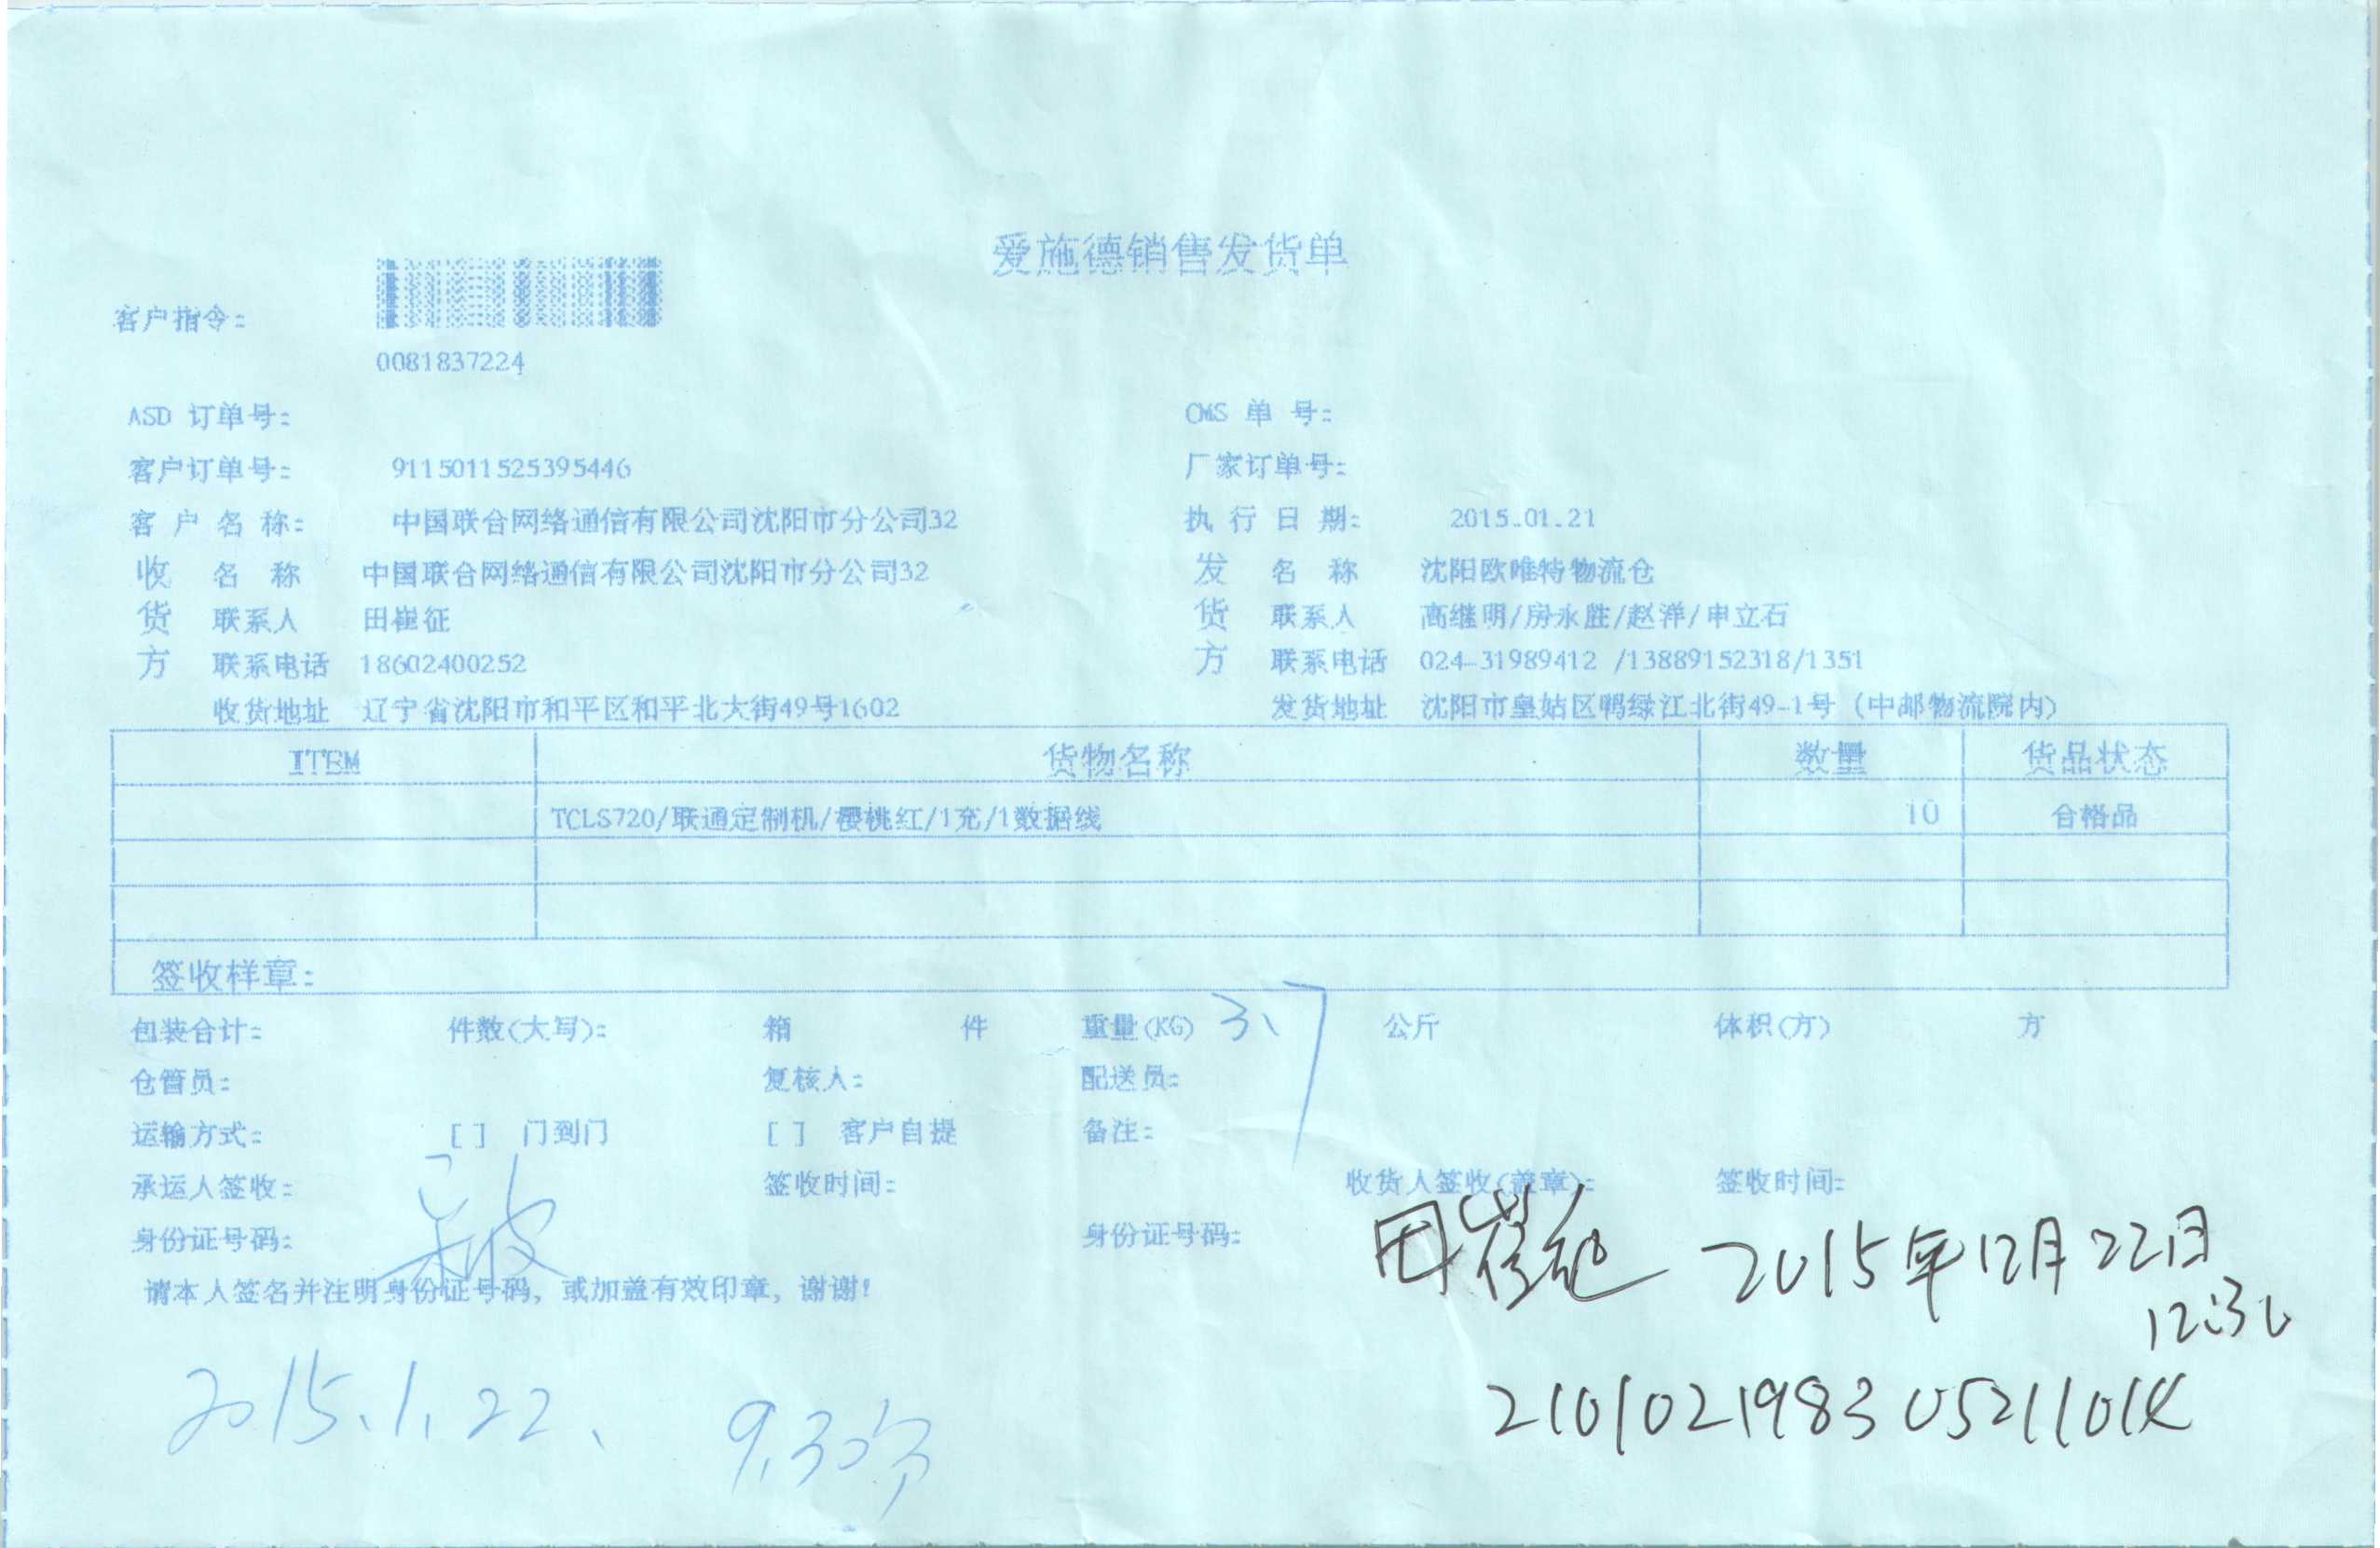 爱施德销售发货单
客户指令:
0081837224
ASD 订单号: CMS 单 号:
客户订单号: 9115011525395446 厂家订单号:
客 户 名 称: 中国联合网络通信有限公司沈阳市分公司32 执 行 日 期: 2015.01.21
收 名 称 中国联合网络通信有限公司沈阳市分公司32 发 名 称 沈阳欧唯特物流仓
货 联系人 田崔征 货 联系人 高继明/房永胜/赵洋/申立石
方 联系电话 18602400252 方 联系电话 024-31989412 /13889152318/1351
收货地址 辽宁省沈阳市和平区和平北大街49号1602 发货地址 沈阳市皇姑区鸭绿江北街49-1号 (中邮物流院内)
ITEM 货物名称 数量 货品状态
TCLS720/联通定制机/樱桃红/1充/1数据线 10 合格品
签收样章:
包装合计: 件数(大写): 箱 件 重量(KG) 3.7 公斤 体积(方) 方
仓管员: 复核人: 配送员:
运输方式: [ ] 门到门 [ ] 客户自提 备注:
承运人签收: 签收时间: 收货人签收(盖章): 签收时间:
身份证号码: 身份证号码: 田崔 2015年12月22日
12:30
请本人签名并注明身份证号码, 或加盖有效印章, 谢谢!
2015.1.22. 9.30
210102198305211014